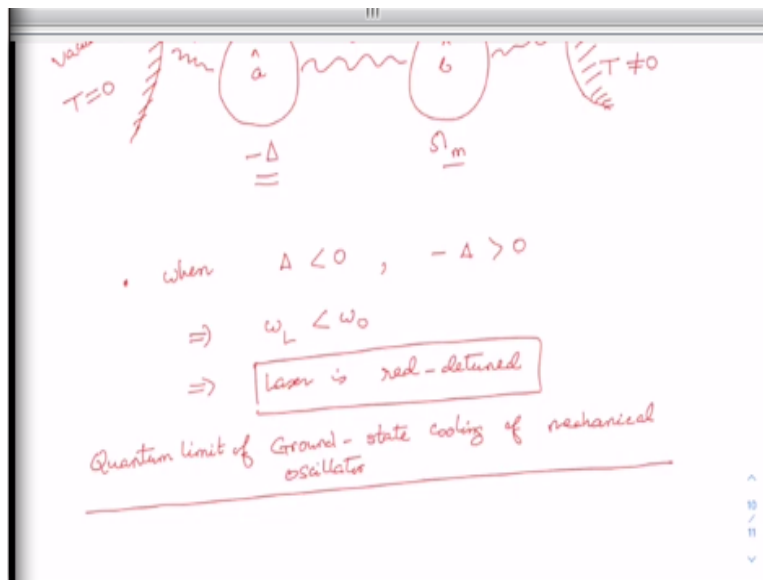 T=0
â
b̂
T≠0
-Δ
Ωm
• when Δ < 0 , -Δ > 0
⇒ ω_L < ω_0
⇒ Laser is red-detuned
Quantum limit of Ground-state cooling of mechanical
oscillator
10
/
11